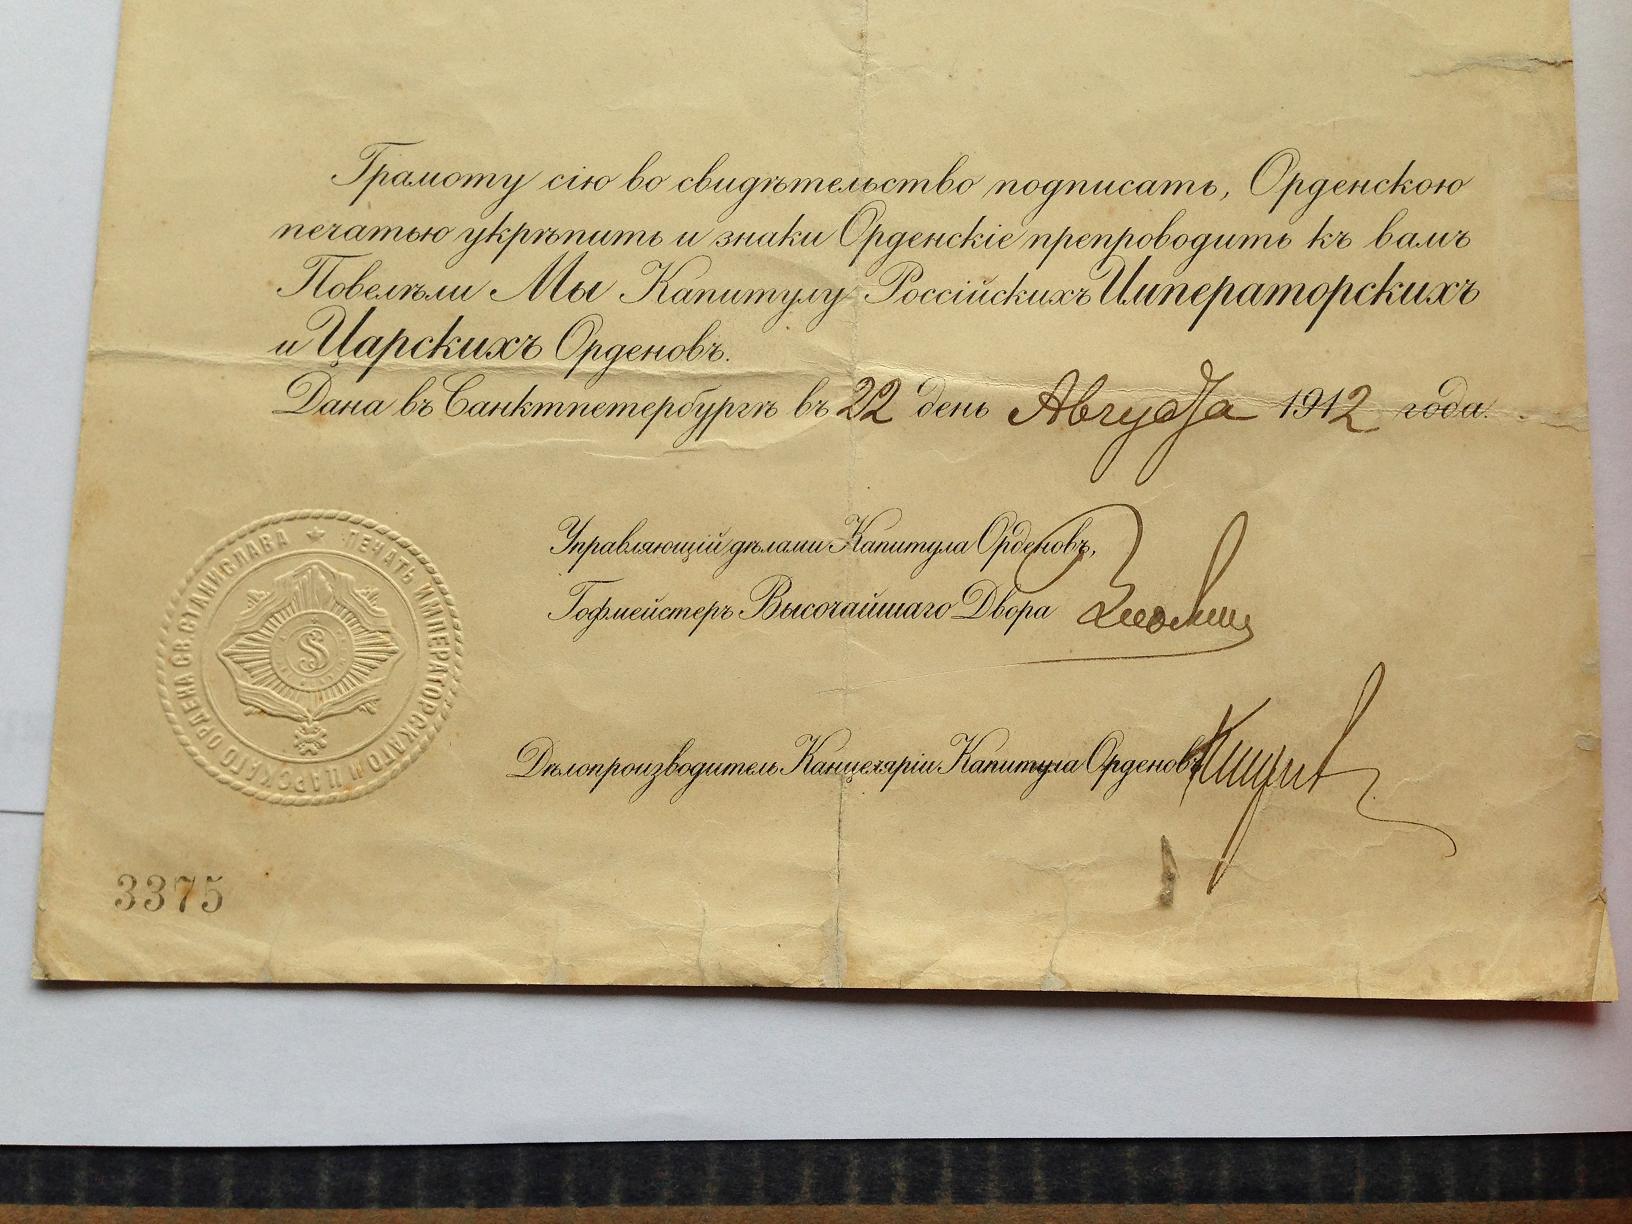 Грамоту сію во свидѣтельство подписать, Орденскою
печатью укрѣпить и знаки Орденскіе препроводить къ вамъ
Повелѣли Мы Капитулу Россійскихъ Императорскихъ
и Царскихъ Орденовъ.
Дана въ Санктпетербургѣ въ 22 день Августа 1912 года.
Управляющій дѣлами Капитула Орденовъ,
Гофмейстеръ Высочайшаго Двора
Дѣлопроизводитель Канцеляріи Капитула Орденовъ
ПЕЧАТЬ ИМПЕРАТОРСКАГО И ЦАРСКАГО ОРДЕНА СВ. СТАНИСЛАВА
SS
3375